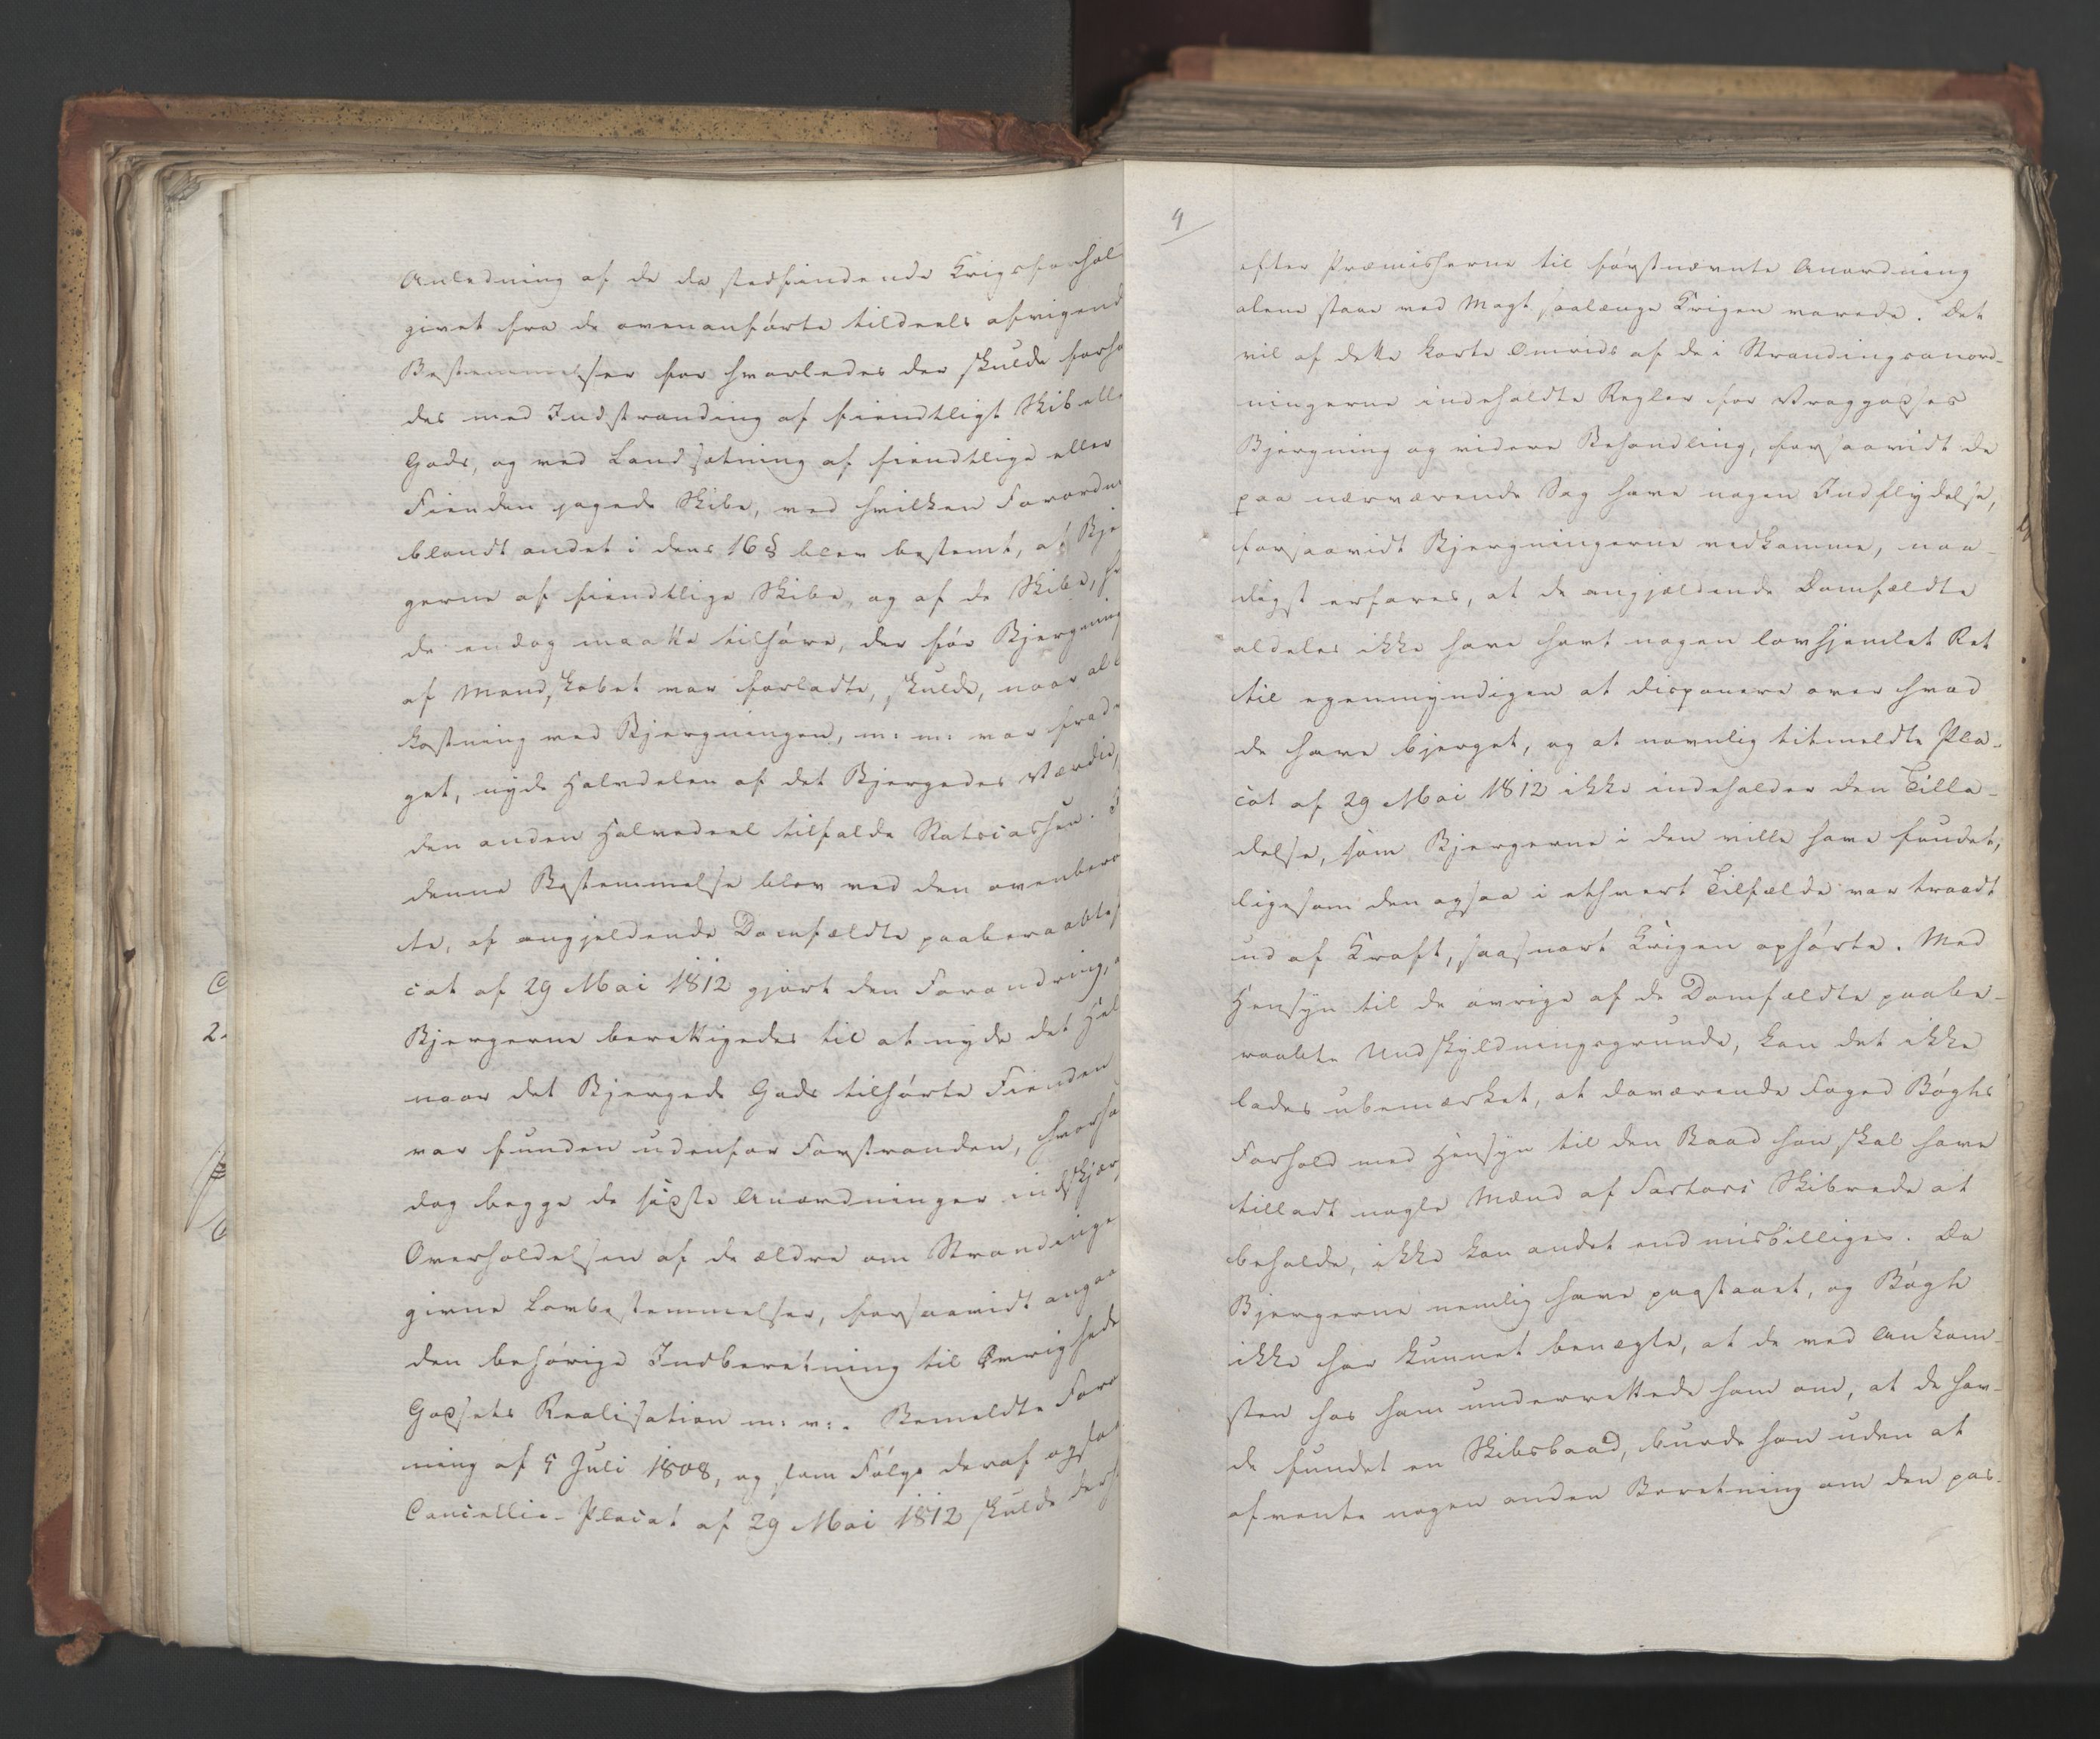 Anledning af de da stedfindende Krigsforhol
givet fra de ovenanførte tildeels afvigend
Bestemmelser for hvorledes der skulde forho
des med Indstranding af fiendtligt Skib elle
Gods, og ved Landsætning af fiendtlige eller
Fienden jagede Skibe, ved hvilken Forordn
blandt andet i dens 16 § blev bestemt, at Bje
gerne af fiendtlige Skibe, og af de Skibe, h
de endog maatte tilhøre, der før Bjergning
af Mandskabet var forladte, skulde, naar al
kostning ved Bjergningen, m: m: var frad
get, nyde Halvdelen af det Bjergedes Værdie,
den anden Halvedeel tilfalde Statscassen.
denne Bestemmelse blev ved den ovenbero
te, af angjeldende Domfældte paaberaabte
cat af 29 Mai 1812 gjort den Forandring,
Bjergerne berettigedes til at nyde det Hel
naar det Bjergede Gods tilhørte Fienden
var funden udenfor Forstranden, hvorho
dog begge de sidste Anordninger indskjær
Overholdelsen af de ældre om Strandinge
givne Lovbestemmelser, forsaavidt angaa
den behørige Indberetning til Øvrighede
Godsets Realisation m: v:. Bemeldte Foro
ning af 5 Juli 1808, og som Følge deraf ogsaa
Cancellie-Placat af 29 Mai 1812 skulde der
9
efter Præmisserne til førstnævnte Anordning
alene staae ved Magt saalænge Krigen varede. Det
vil af dette korte Omrids af de i Strandingsanord-
ningerne indeholdte Regler for Vraggodses
Bjergning og videre Behandling, forsaavidt de
paa nærværende Sag have nogen Indflydelse,
forsaavidt Bjergningerne vedkomme, naa-
digst erfares, at de angjældende Domfældte
aldeles ikke have havt nogen lovhjemlet Ret
til egenmyndigen at disponere over hvad
de have bjerget, og at navnlig titmeldte Pla-
cat af 29 Mai 1812 ikke indeholder den Tilla-
delse, som Bjergerne i den ville have fundet,
ligesom den ogsaa i ethvert Tilfælde var traadt
ud af Kraft, saasnart Krigen ophørte. Med
Hensyn til de øvrige af de Domfældte paabe-
raabte Undskyldningsgrunde, kan det ikke
lades ubemærket, at daværende Foged Bøghs
Forhold med Hensyn til den Baad han skal have
tilladt nogle Mænd af Sartors Skibrede at
beholde, ikke kan andet end misbilliges. Da
Bjergerne nemlig have paastaaet, og Bøgh
ikke har kunnet benægte, at de ved Ankom-
sten hos ham underrettede ham om, at de hav-
de fundet en Skibsbaad, burde han uden at
afvente nogen anden Beretning om den pas-